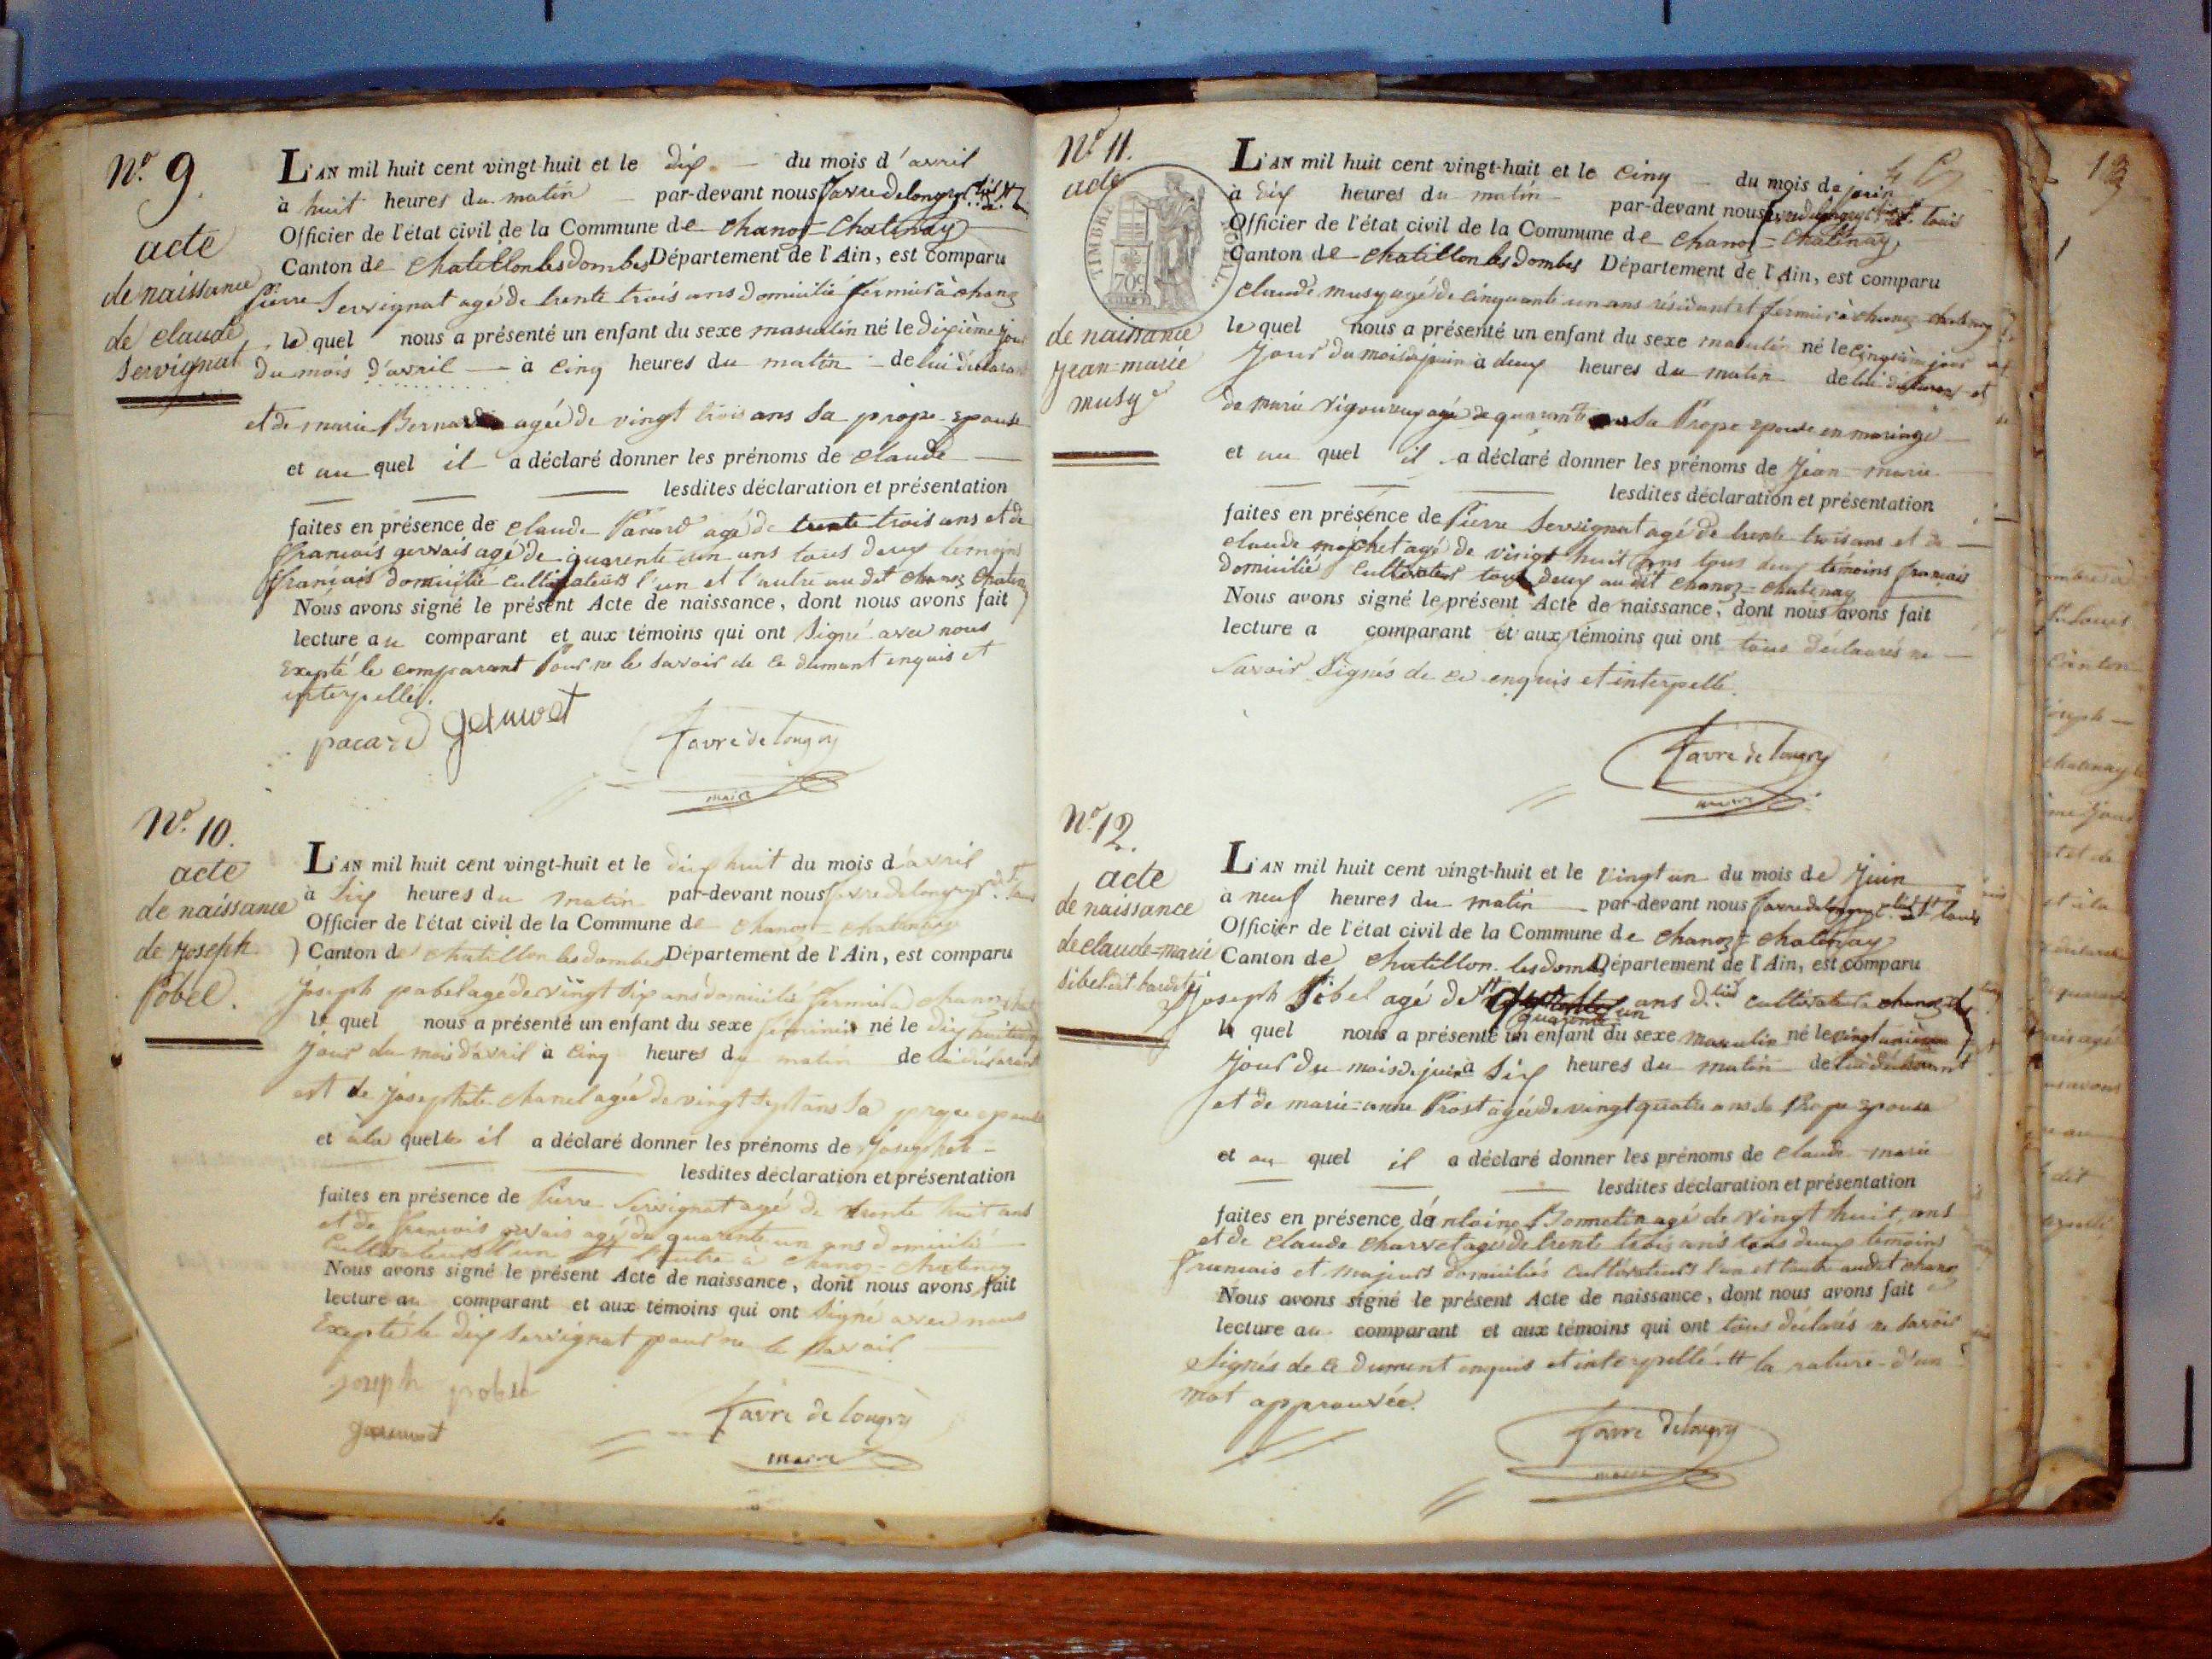 N.º 9.
acte
de naissance
de claude
Servignat
L'AN mil huit cent vingt-huit et le dix du mois d'avril
à huit heures du matin par-devant nous favre delongry
Officier de l'état civil de la Commune de chanoz=Chatenay
Canton de Chatillon les dombes Département de l'Ain, est comparu
Pierre Servignat agé de trente trois ans domicilié fermier à chanoz
le quel nous a présenté un enfant du sexe masculin né le dixième jour
du mois d'avril à cinq heures du matin de lui déclarant
et de marie agée de vingt trois ans sa prope epouse
et au quel il a déclaré donner les prénoms de claude
lesdites déclaration et présentation
faites en présence de claude Pacard agé de trente trois ans et de
francois gervais agé de quarente un ans tous deux témoins
français domicilié cultivateurs l'un et l'autre au dit chanoz chatenay
Nous avons signé le présent Acte de naissance, dont nous avons fait
lecture au comparant et aux témoins qui ont signé avec nous
Exepté le comparant Pour ne le savoir de ce dument enquis et
interpellé.
pacard
favre de longry
maire
N.º 10.
acte
de naissance
de joseph
pobel.
L'AN mil huit cent vingt-huit et le dix huit du mois d'avril
à six heures du matin par-devant nous favre delongry
Officier de l'état civil de la Commune de chanoz=chatenay
Canton de chatillon les dombes Département de l'Ain, est comparu
joseph pobel agé de vingt six ans domicilié fermier à chanoz
le quel nous a présenté un enfant du sexe féminin né le dix huitième
jour du mois d'avril à cinq heures du matin de lui déclarant
et de josephete chanel agée de vingt sept ans sa prope epouse
et à la quelle il a déclaré donner les prénoms de josephete
lesdites déclaration et présentation
faites en présence de Pierre Servignat agé de trente huit ans
et de francois gervais agé de quarente un ans domicilié
Cultivateurs l'un et l'autre à chanoz=chatenay
Nous avons signé le présent Acte de naissance, dont nous avons fait
lecture au comparant et aux témoins qui ont signé avec nous
Exepté le dix servignat pour ne le savoir
joseph pobel
favre de longry
maire
N.º 11.
acte
TIMBRE ROYAL
70c
de naissance
jean=marie
musy
L'AN mil huit cent vingt-huit et le cinq du mois de juin
à six heures du matin par-devant nous
Officier de l'état civil de la Commune de chanoz=chatenay
Canton de chatillon les dombes Département de l'Ain, est comparu
claude musy agé de cinquante un ans résidant et fermier à chanoz chatenay
le quel nous a présenté un enfant du sexe masculin né le cinquième jour
jour du mois de juin à deux heures du matin de lui déclarant et
de marie vigoureux agée de quarante sa Prope epouse en mariage
et au quel il a déclaré donner les prénoms de jean=marie
lesdites déclaration et présentation
faites en présence de Pierre Servignat agé de trente trois ans et de
claude agé de vingt huit ans tous deux témoins français
domicilié cultivateur tous deux au dit chanoz=chatenay
Nous avons signé le présent Acte de naissance, dont nous avons fait
lecture a comparant et aux témoins qui ont tous déclarés ne
savoir signés de ce enquis et interpellé.
favre de longry
maire
N.º 12.
acte
de naissance
de claude=marie
L'AN mil huit cent vingt-huit et le vingt un du mois de juin
à neuf heures du matin par-devant nous favre delongry
Officier de l'état civil de la Commune de chanoz=chatenay
Canton de chatillon les dombes Département de l'Ain, est comparu
joseph Sibel agé de quarente un ans cultivateur à chanoz
le quel nous a présenté un enfant du sexe masculin né le vingt unième
jour du mois de juin à six heures du matin de lui déclarant
et de marie=anne Prost agée de vingt quatre ans sa Prope epouse
et au quel il a déclaré donner les prénoms de claude=marie
lesdites déclaration et présentation
faites en présence d'antoine Bonnetin agé de vingt huit ans
et de claude charvet agé de trente trois ans tous deux témoins
francais et majeurs domiciliés cultivateurs l'un et l'autre audit chanoz
Nous avons signé le présent Acte de naissance, dont nous avons fait
lecture au comparant et aux témoins qui ont tous déclarés ne savoir
signés de ce dument enquis et interpellé. et la rature d'un
mot approuvée.
favre delongry
maire